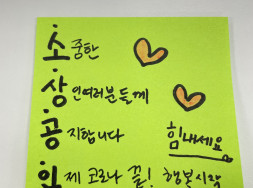 소중한
상인여러분들께
공지합니다 힘내세요
이제 코로나 끝! 행복시작